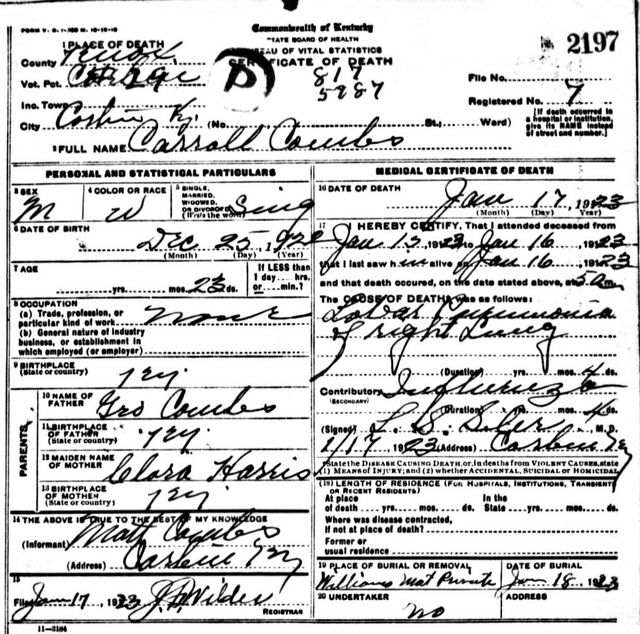 FORM V. S. 1-
Commonwealth of Kentucky
STATE BOARD OF HEALTH
BUREAU OF VITAL STATISTICS
CERTIFICATE OF DEATH
2197
1 PLACE OF DEATH
County Knox
Vot. Pct.
Inc. Town
City Corbin Ky. (No. St.; Ward)
D
817
5887
File No.
Registered No. 7
[If death occurred in a hospital or institution, give its NAME instead of street and number.]
2 FULL NAME Carroll Combs
PERSONAL AND STATISTICAL PARTICULARS
3 SEX M
4 COLOR OR RACE W
5 SINGLE, MARRIED, WIDOWED, OR DIVORCED (Write the word) Sing
6 DATE OF BIRTH Dec 25, 192
(Month) (Day) (Year)
7 AGE
yrs. mos. 23 ds.
If LESS than 1 day....hrs. or....min.?
8 OCCUPATION
(a) Trade, profession, or particular kind of work None
(b) General nature of industry business, or establishment in which employed (or employer)
9 BIRTHPLACE
(State or country) Ky
PARENTS
10 NAME OF FATHER Geo Combs
11 BIRTHPLACE OF FATHER
(State or country) Ky
12 MAIDEN NAME OF MOTHER Clora Harris
13 BIRTHPLACE OF MOTHER
(State or country) Ky
14 THE ABOVE IS TRUE TO THE BEST OF MY KNOWLEDGE
(Informant) Matt Combs
(Address) Corbin Ky
15
Filed Jan 17, 1923 Wilder
REGISTRAR
11-3184
MEDICAL CERTIFICATE OF DEATH
16 DATE OF DEATH Jan 17 1923
(Month) (Day) (Year)
17 I HEREBY CERTIFY, That I attended deceased from
Jan 15 1923 to Jan 16, 1923
that I last saw him alive on Jan 16 1923
and that death occured, on the date stated above, at 5 am.
The CAUSE OF DEATH was as follows:
Lobar Pneumonia
of right Lung
(Duration) yrs. mos. 4 ds.
Contributory Influenza
(SECONDARY)
(Duration) yrs. mos. 4 ds.
(Signed) M. D.
1/17 1923 (Address) Corbin Ky
State the DISEASE CAUSING DEATH, or, in deaths from VIOLENT CAUSES, state
(1) MEANS OF INJURY; and (2) whether ACCIDENTAL, SUICIDAL or HOMICIDAL
(18) LENGTH OF RESIDENCE (FOR HOSPITALS, INSTITUTIONS, TRANSIENTS OR RECENT RESIDENTS)
At place of death yrs. mos. ds. In the State yrs. mos. ds.
Where was disease contracted,
if not at place of death?
Former or
usual residence
19 PLACE OF BURIAL OR REMOVAL
Williams Private
DATE OF BURIAL
Jan 18, 1923
20 UNDERTAKER
no
ADDRESS